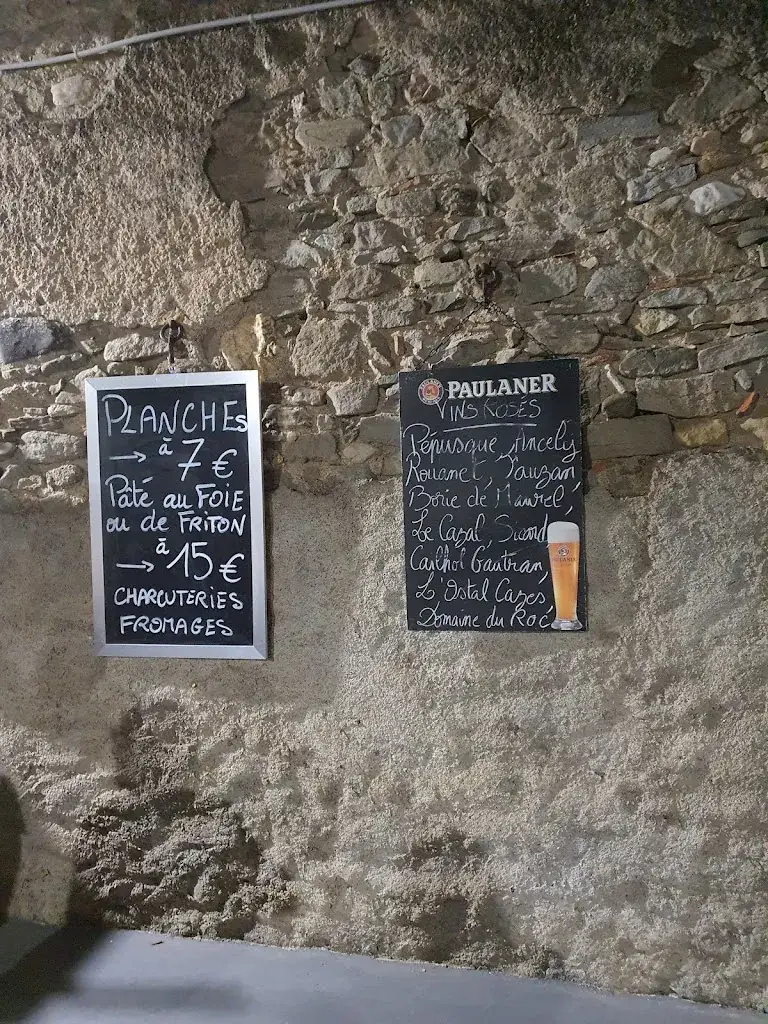 PLANCHES
→ à 7 €
Pâté au FOIE
ou de FRITON
→ à 15 €
CHARCUTERIES
FROMAGES
PAULANER
VINS ROSÉS
Pépusque, Ancely
Rouanet, Pauzan,
Borie de Maurel,
Le Cazal, Sicard
Cailhol Gautran,
L'Ostal Cazes,
Domaine du Roc
PAULANER